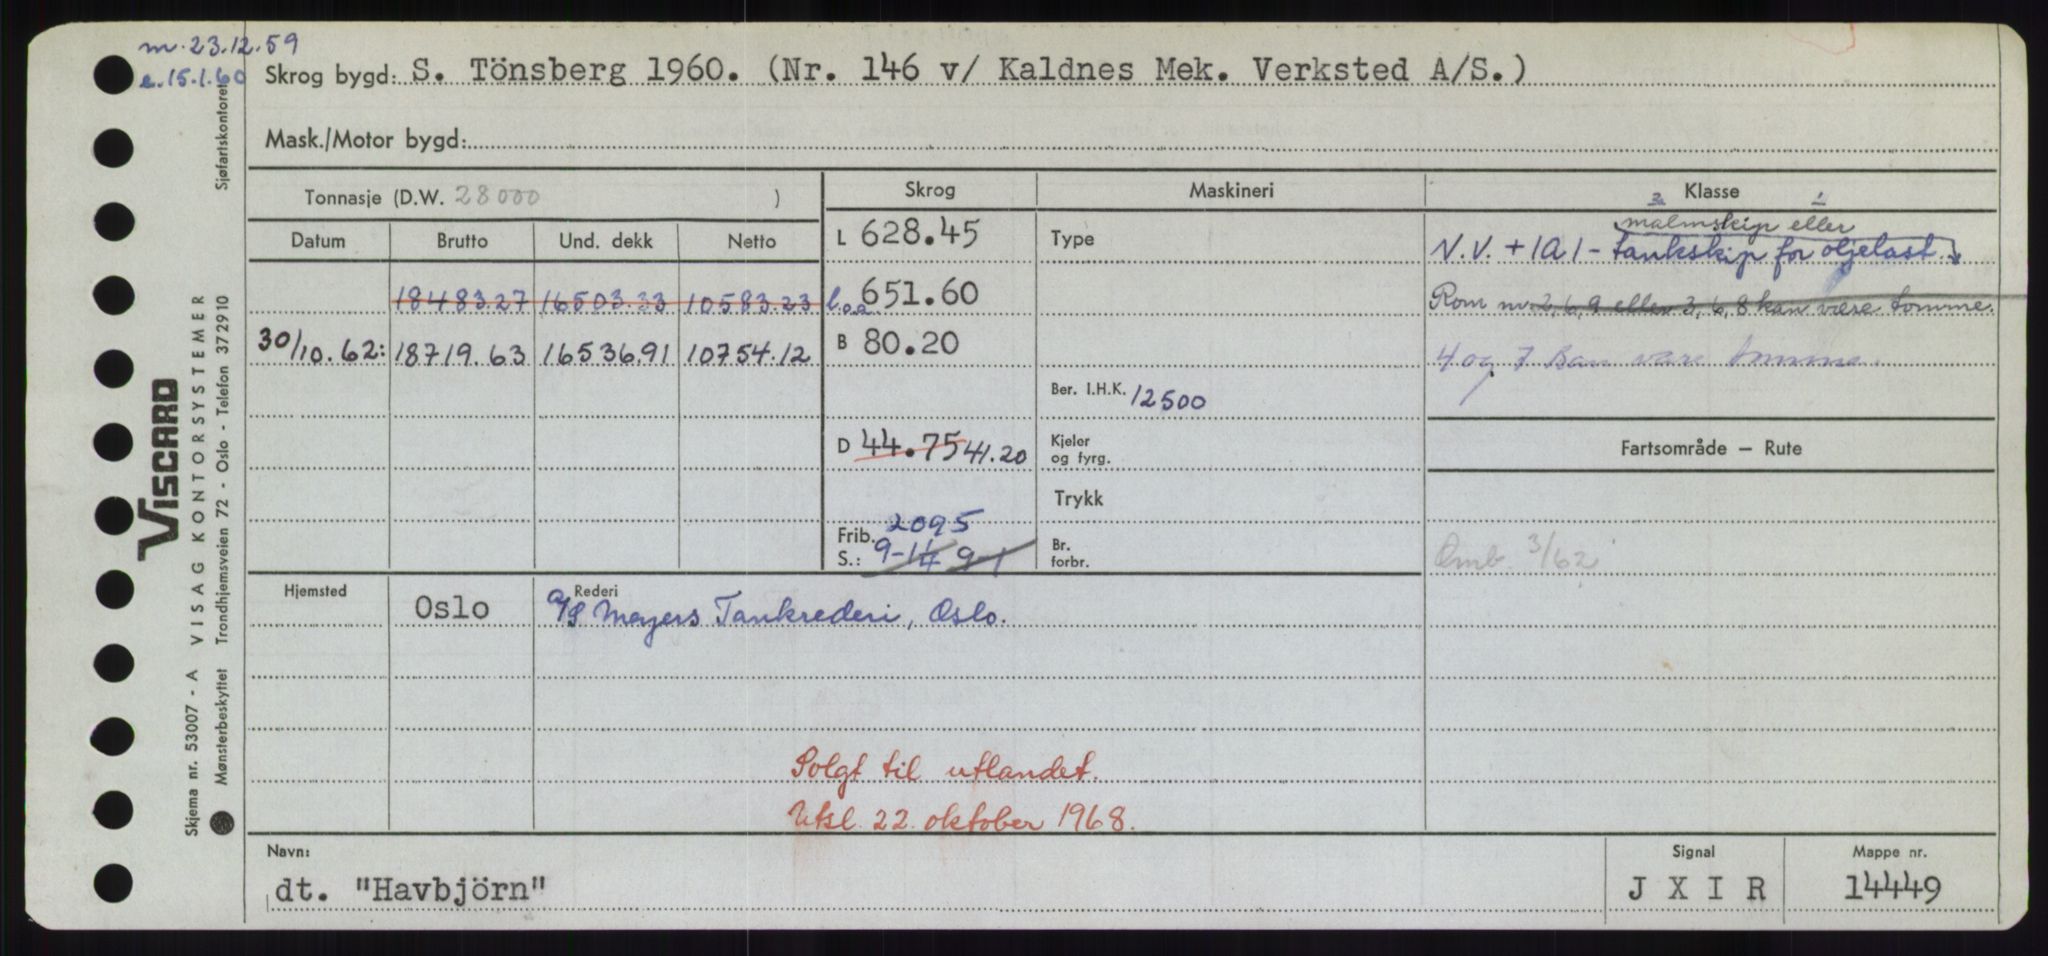 m. 23.12.59
e. 15.1.60
Skrog bygd: S. Tönsberg 1960. (Nr. 146 v/ Kaldnes Mek. Verksted A/S.)
Mask./Motor bygd:
Tonnasje (D.W. 28000 )
Datum Brutto Und. dekk Netto
18483.27 16503.33 10583.23
30/10.62: 18719.63 16536.91 10754.12
Skrog
L 628.45
l.o.a. 651.60
B 80.20
D 44.75 41.20
2095
Frib.
S.: 9-1¼ 9-1
Maskineri
Type
Ber. I.H.K. 12500
Kjeler
og fyrg.
Trykk
Br.
forbr.
Klasse
malmskip eller
N.V. + 1A1 - tankskip for oljelast
Rom nr. 2, 6, 9 eller 3, 6, 8 kan være tomme.
4 og 7 kan være tomme.
Fartsområde — Rute
Omb. 3/62
Hjemsted Oslo
Rederi
A/S Meyers Tankrederi, Oslo.
Solgt til utlandet.
Utsl. 22. oktober 1968.
Navn:
dt. "Havbjörn"
Signal
J X I R
Mappe nr.
14449
VISCARD
Skjema nr. 53007 - A VISAG KONTORSYSTEMER
Mønsterbeskyttet Trondhjemsveien 72 - Oslo - Telefon 372910
Sjøfartskontoret